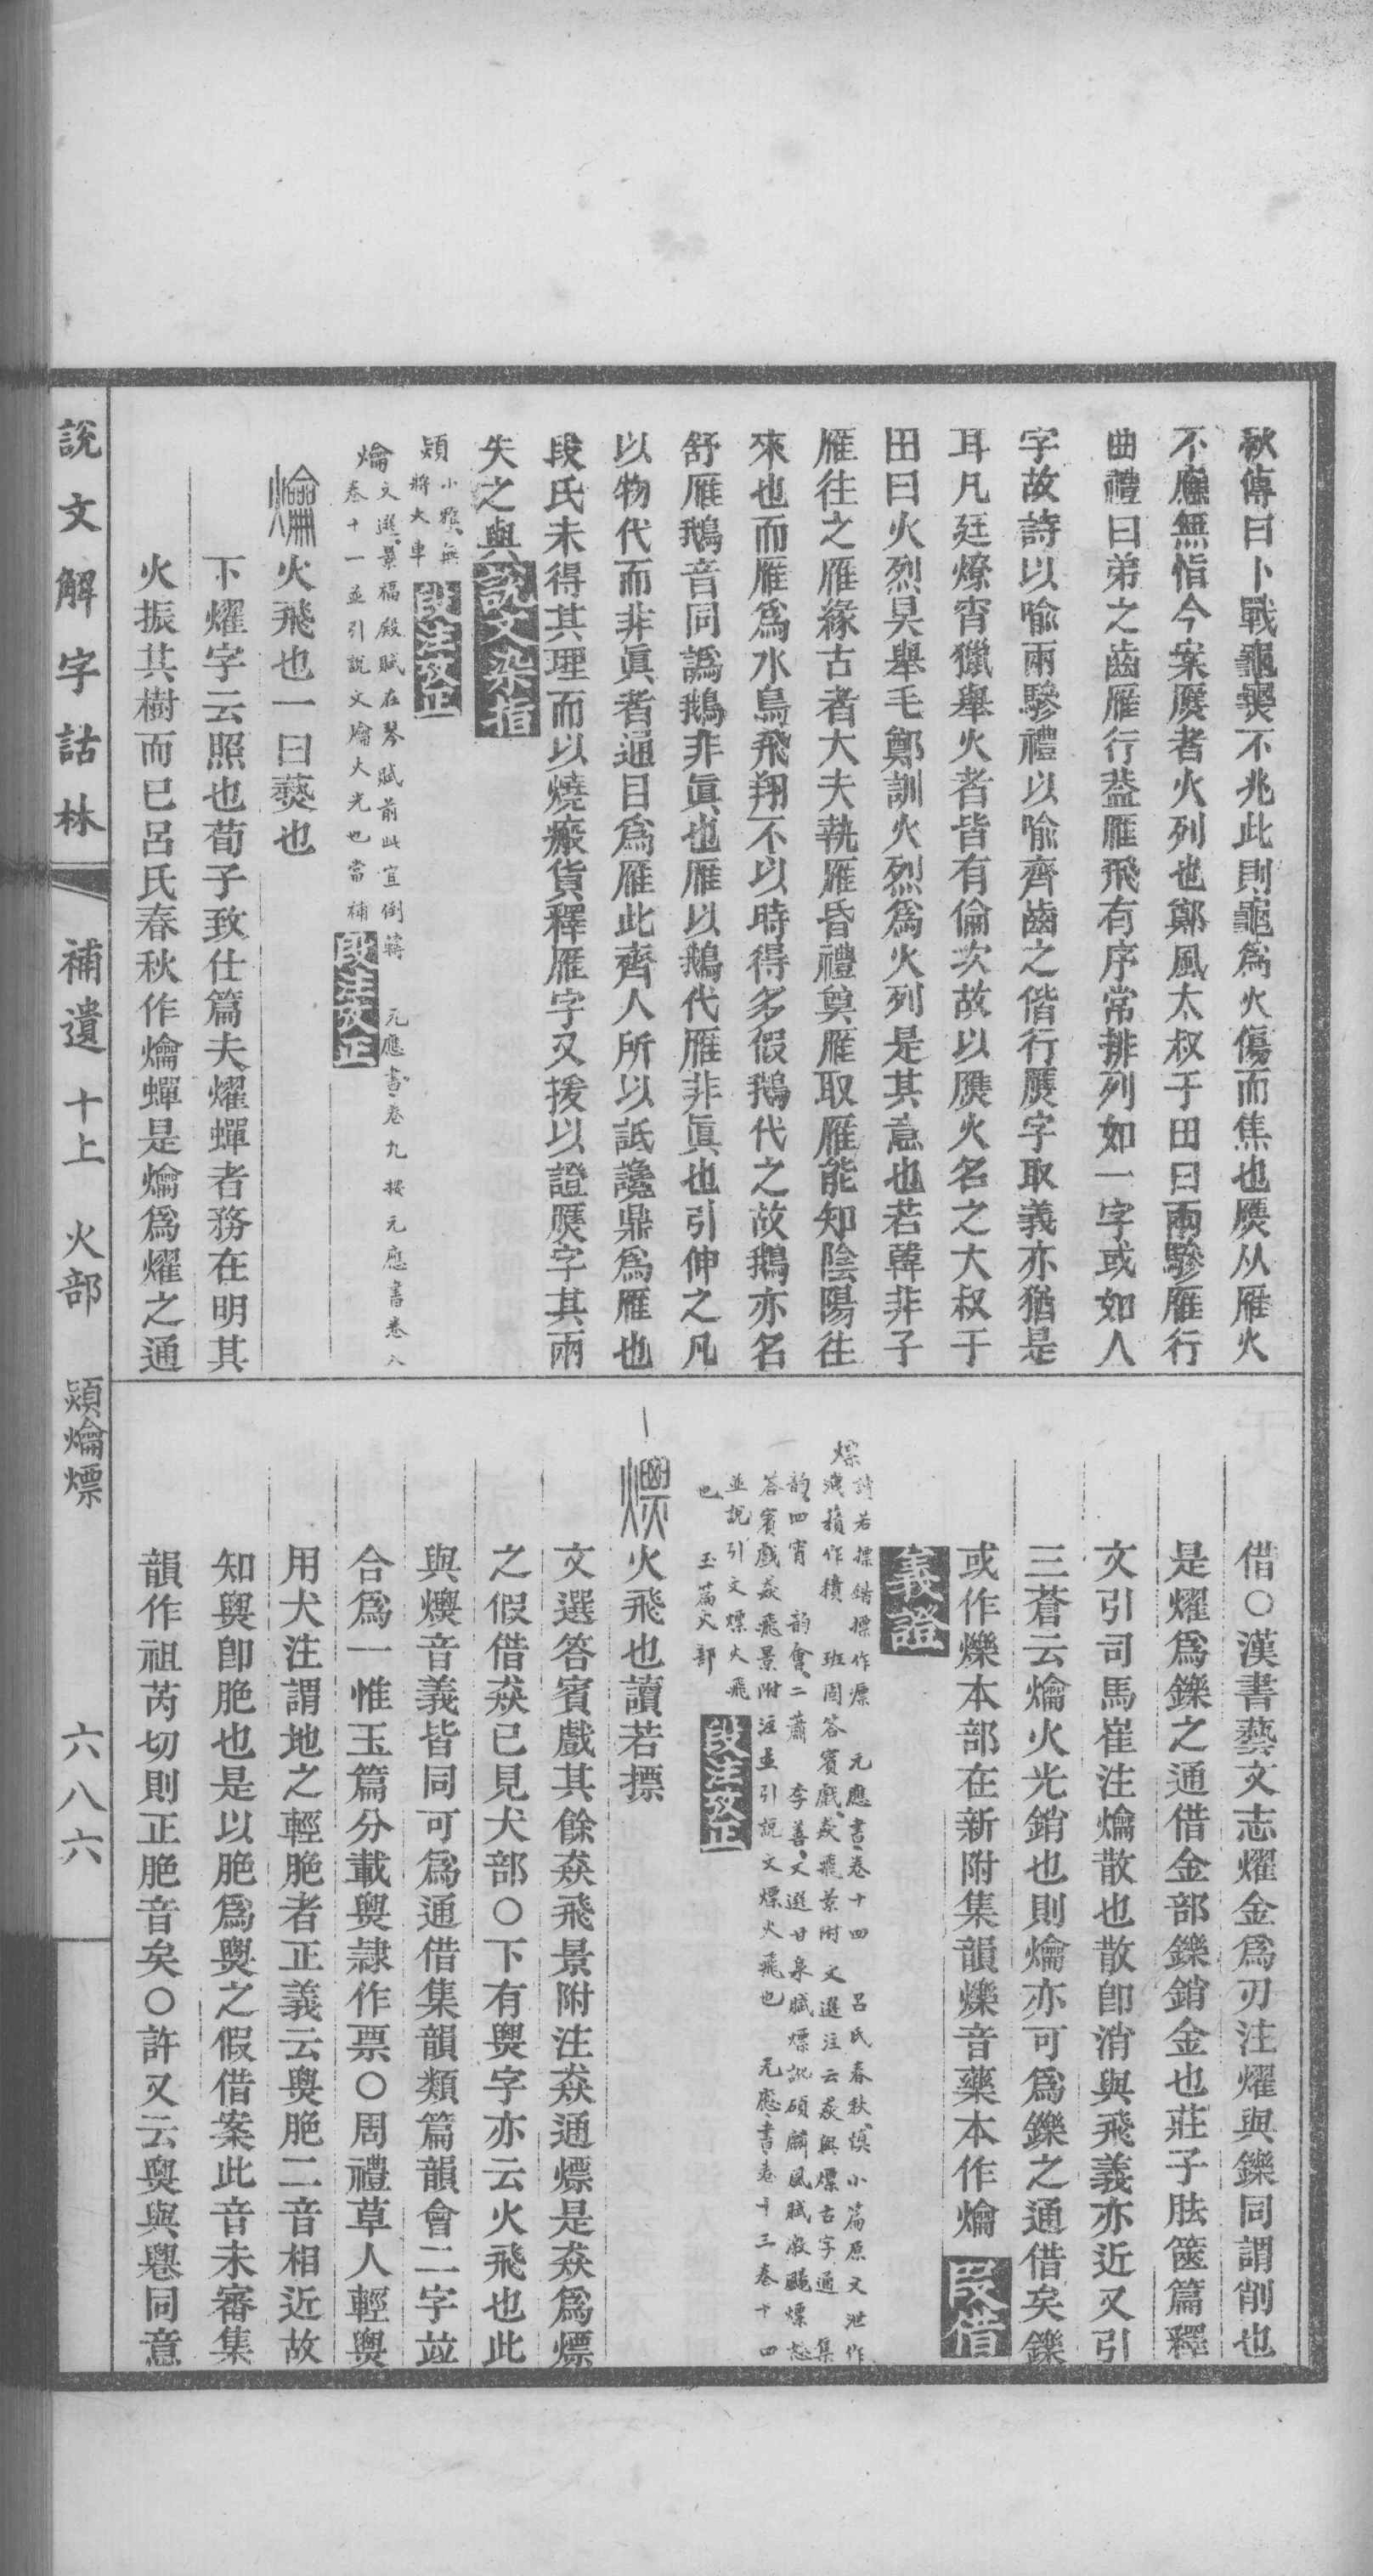 秋傳曰卜戰龜𤒅不兆此則龜爲火傷而焦也㷳从雁火
不應無恉今案㷳者火列也鄭風太叔于田曰兩驂雁行
曲禮曰弟之齒雁行葢雁飛有序常排列如一字或如人
字故詩以喻兩驂禮以喻齊齒之偕行㷳字取義亦猶是
耳凡廷燎宵獵舉火者皆有倫次故以㷳火名之大叔于
田曰火烈具舉毛鄭訓火烈爲火列是其意也若韓非子
雁往之雁緣古者大夫執雁昏禮奠雁取雁能知陰陽往
來也而雁爲水鳥飛翔不以時得多假鵝代之故鵝亦名
舒雁鵝音同譌鵝非眞也雁以鵝代雁非眞也引伸之凡
以物代而非眞者通目爲雁此齊人所以詆讒鼎爲雁也
段氏未得其理而以燒瘢貨釋雁字又援以證㷳字其兩
失之與說文染指
熲小雅無將大車段注攷正
爚文選景福殿賦在琴賦前此宜倒蒋 元應書卷九 按元應書卷八
卷十一並引說文爚大光也當補段注攷正
爚火飛也一曰爇也
下燿字云照也荀子致仕篇夫燿蟬者務在明其
火振其樹而已呂氏春秋作爚蟬是爚爲燿之通
借○漢書藝文志燿金爲刃注燿與鑠同謂削也
是燿爲鑠之通借金部鑠銷金也莊子胠篋篇釋
文引司馬崔注爚散也散卽消與飛義亦近又引
三蒼云爚火光銷也則爚亦可爲鑠之通借矣鑠
或作爍本部在新附集韻爍音藥本作爚段借
義證
熛讀若摽錯摽作瘭 元應書卷十四 呂氏春秋愼小篇原文泄作
洩積作積 班固答賓戲猋飛景附 文選注云猋與熛古字通 集
韵四宵 韵會二蕭 李善文選甘泉賦熛訛碩麟風賦激颺熛怒
答賓戲猋飛景附注並引說文熛火飛也 元應書卷十三卷十四
並說引文熛火飛
也 玉篇火部段注攷正
熛火飛也讀若摽
文選答賓戲其餘猋飛景附注猋通熛是猋爲熛
之假借猋已見犬部○下有𤐫字亦云火飛也此
與熛音義皆同可爲通借集韻類篇韻會二字竝
合爲一惟玉篇分載𤐫隸作票○周禮草人輕𤐫
用犬注謂地之輕脃者正義云𤐫脃二音相近故
知𤐫卽脃也是以脃爲𤐫之假借案此音未審集
韻作祖芮切則正脃音矣○許又云𤐫與䙴同意
說文解字詁林 補遺 十上 火部 熲爚熛 六八六